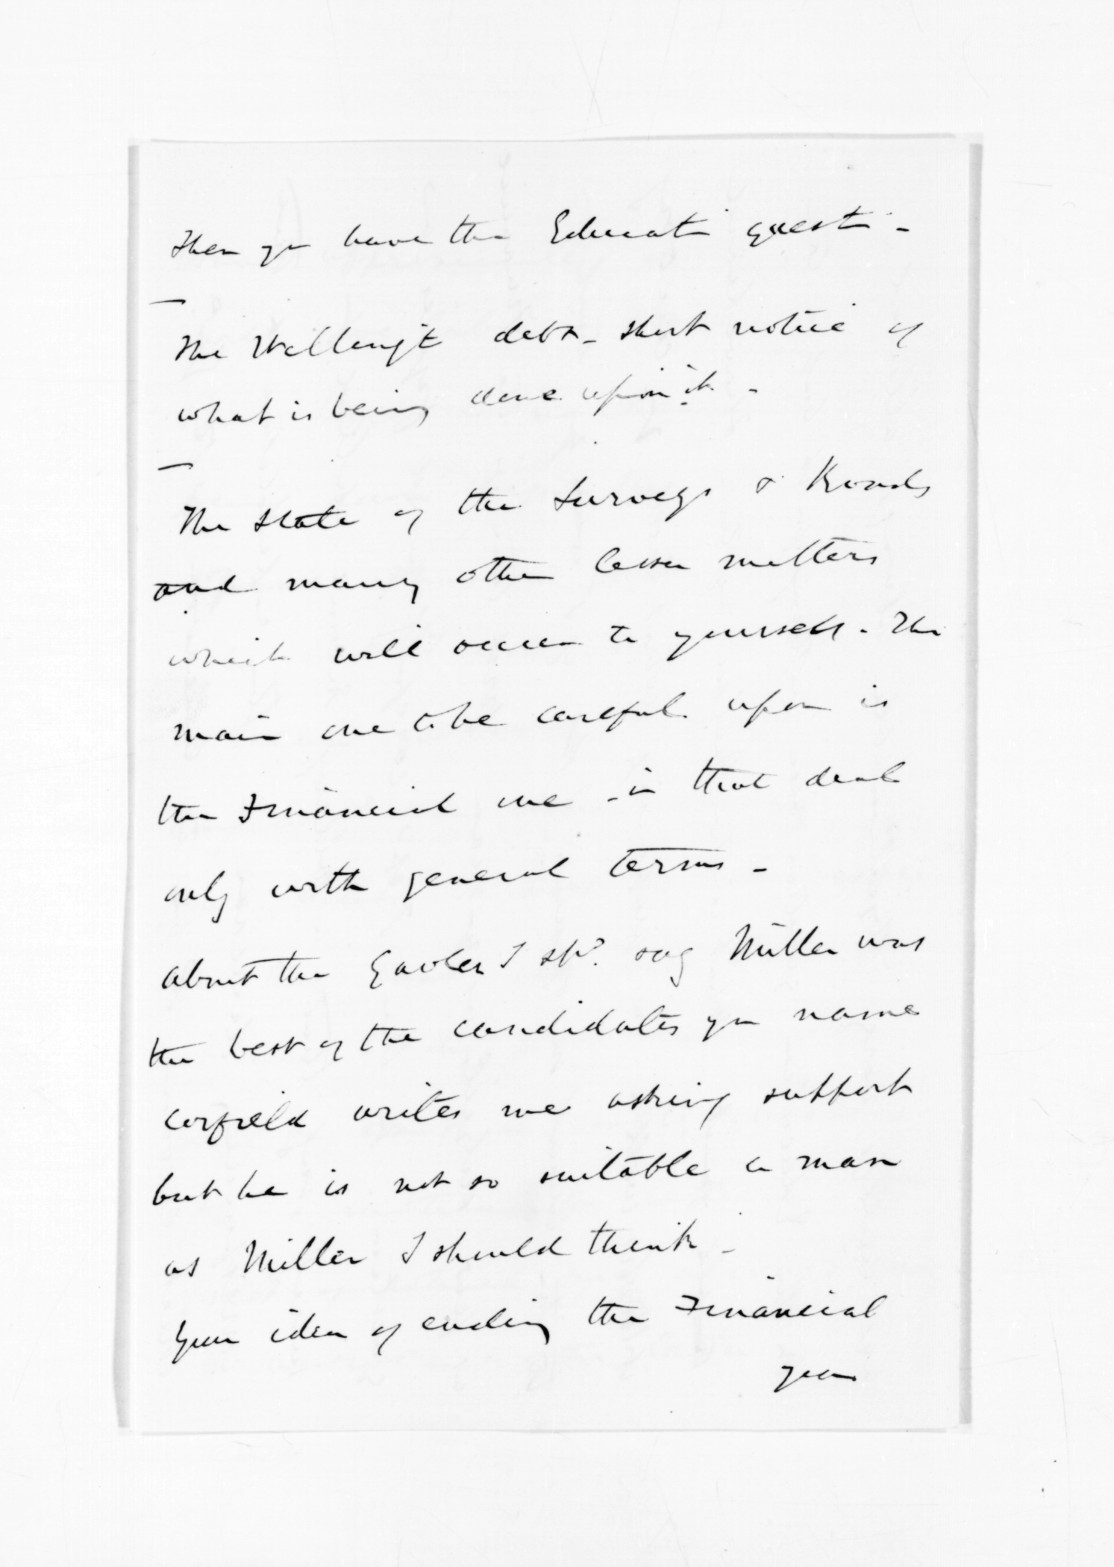 Then yr have the Educatn questn -
The Wellingt debt - short notice of
what is being done upon it -
The state of the Surveys & Roads
and many other lesser matters
which will occur to yourself. The
main one to be careful upon is
the Financial one - in that deal
only with general terms -
about the Gaoler I shd. say Miller was
the best of the candidates you name
Corfield writes me asking support
but he is not so suitable a man
as Miller I should think -
Your idea of ending the Financial
year